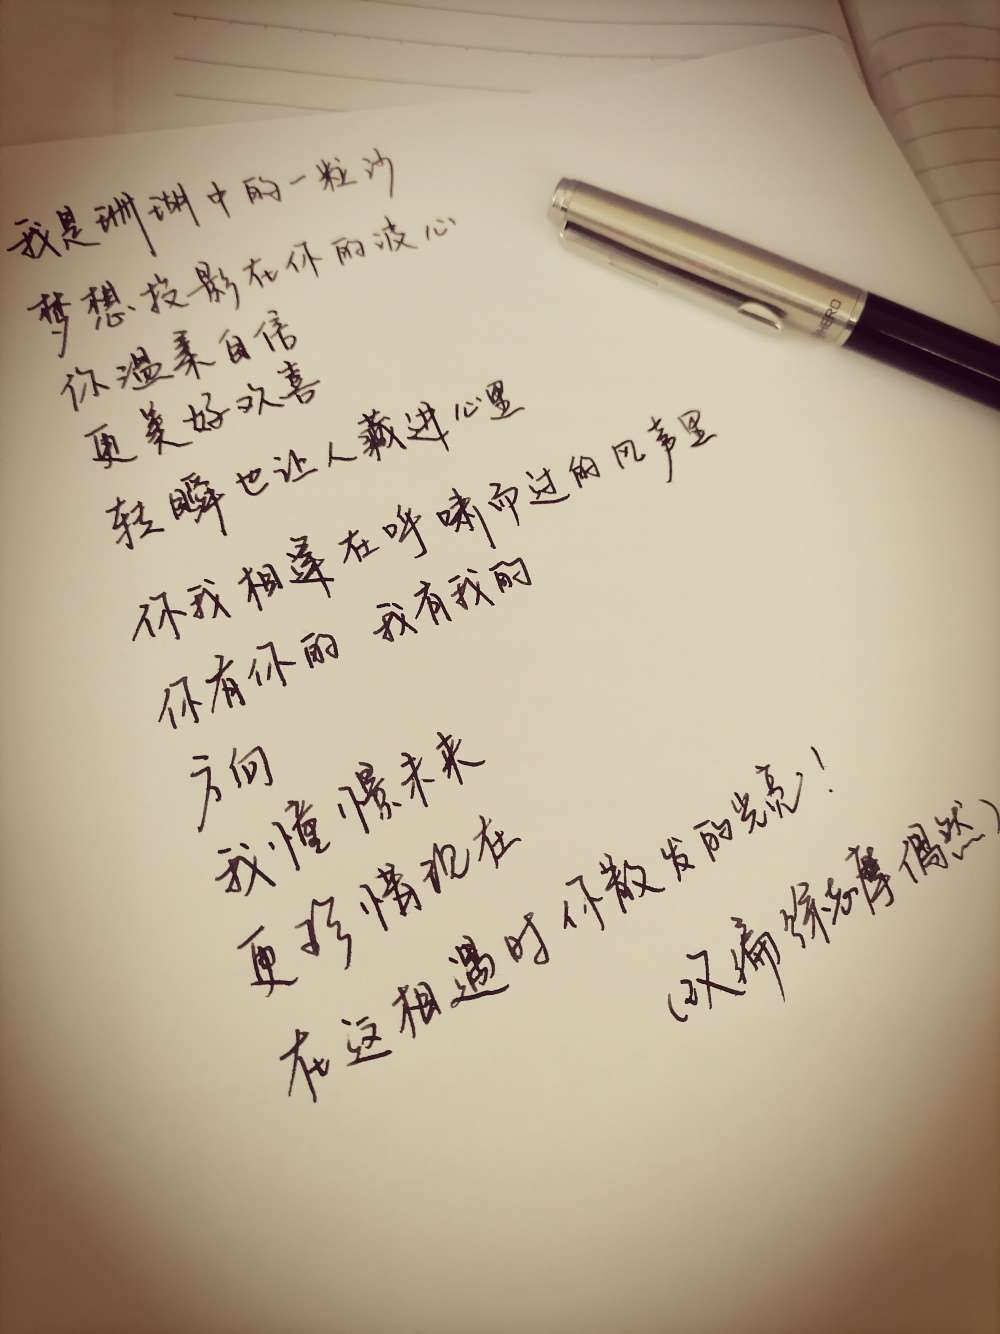 我是珊瑚中的一粒沙
梦想投影在你的波心
你温柔自信
更美好欢喜
转瞬也让人藏进心里
你我相逢在呼啸而过的风声里
你有你的 我有我的
方向
我憧憬未来
更珍惜现在
在这相遇时你散发的光亮！
(改编徐志摩偶然)
HERO